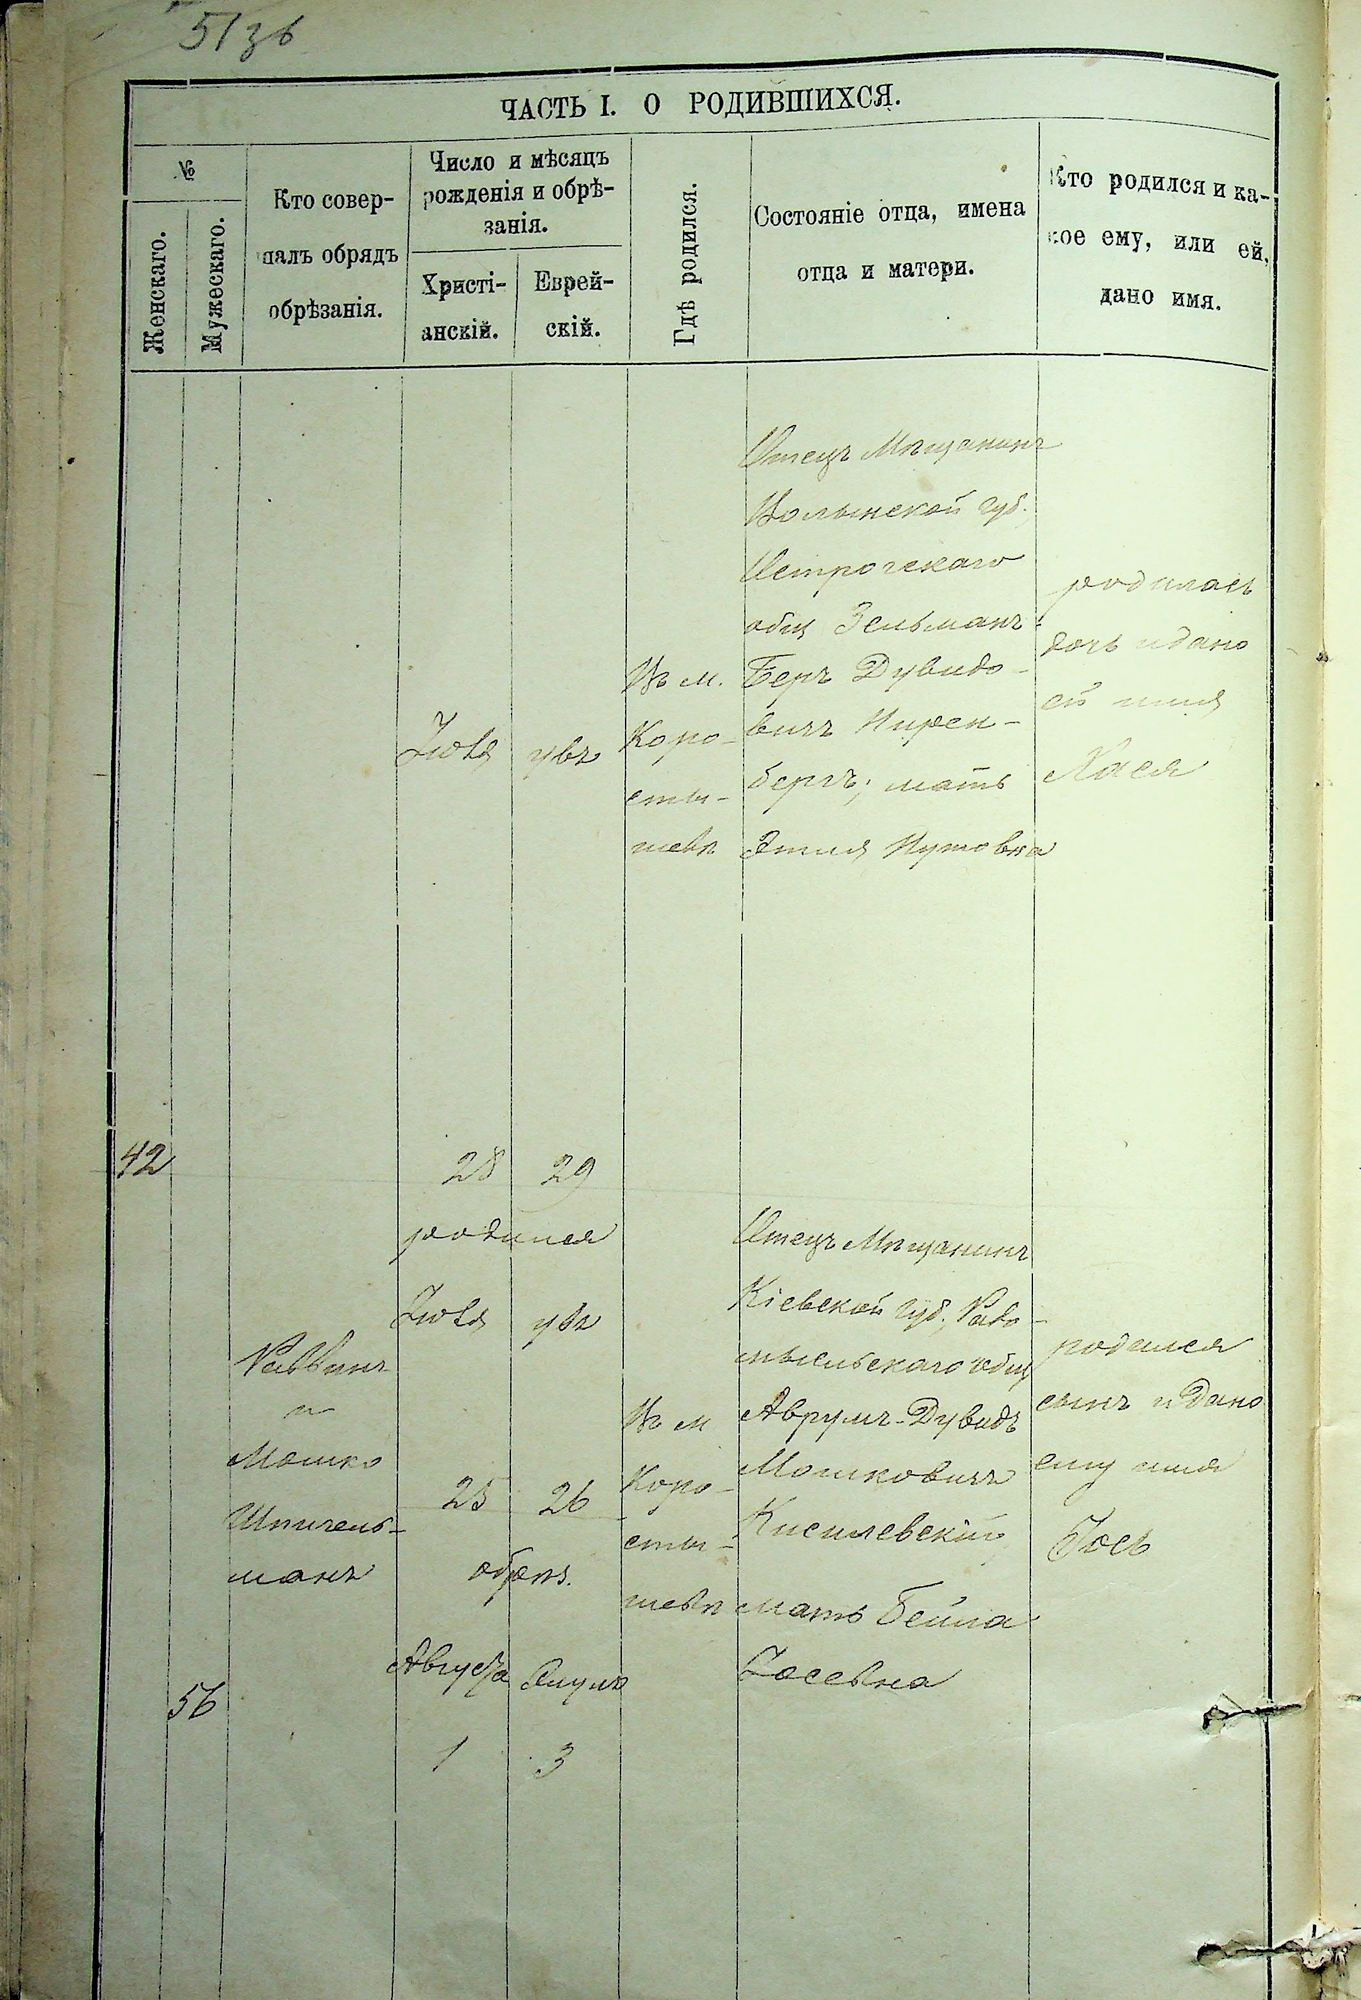 51зв
ЧАСТЬ I. О РОДИВШИХСЯ.
№
Женскаго.
Мужескаго.
Кто совер-
шалъ обрядъ
обрѣзанія.
Число и мѣсяцъ
рожденія и обрѣ-
занія.
Христі-
анскій.
Еврей-
скій.
Гдѣ родился.
Состояніе отца, имена
отца и матери.
Кто родился и ка-
кое ему, или ей,
дано имя.
42
Іюля
28
29
Въ м.
Коро-
сты-
шевѣ
Отецъ Мѣщанинъ
Волынской губ.
Острогскаго
общ Зельманъ-
Беръ Дувидо-
вичъ Нирен-
бергъ; мать
Этля Нутовна
родилась
дочь и дано
ей имя
Хася
56
Раввинъ
и
Мошко
Шпигель-
манъ
родился
Іюля
25
26
обрѣз.
Августа
1
3
Въ м
Коро-
сты-
шевѣ
Отецъ Мѣщанинъ
Кіевской губ., Радо-
мысльскаго общ
Аврумъ-Дувидъ
Мошковичъ
Кисилевскій
мать Бейла
Іосевна
родился
сынъ и дано
ему имя
Іось